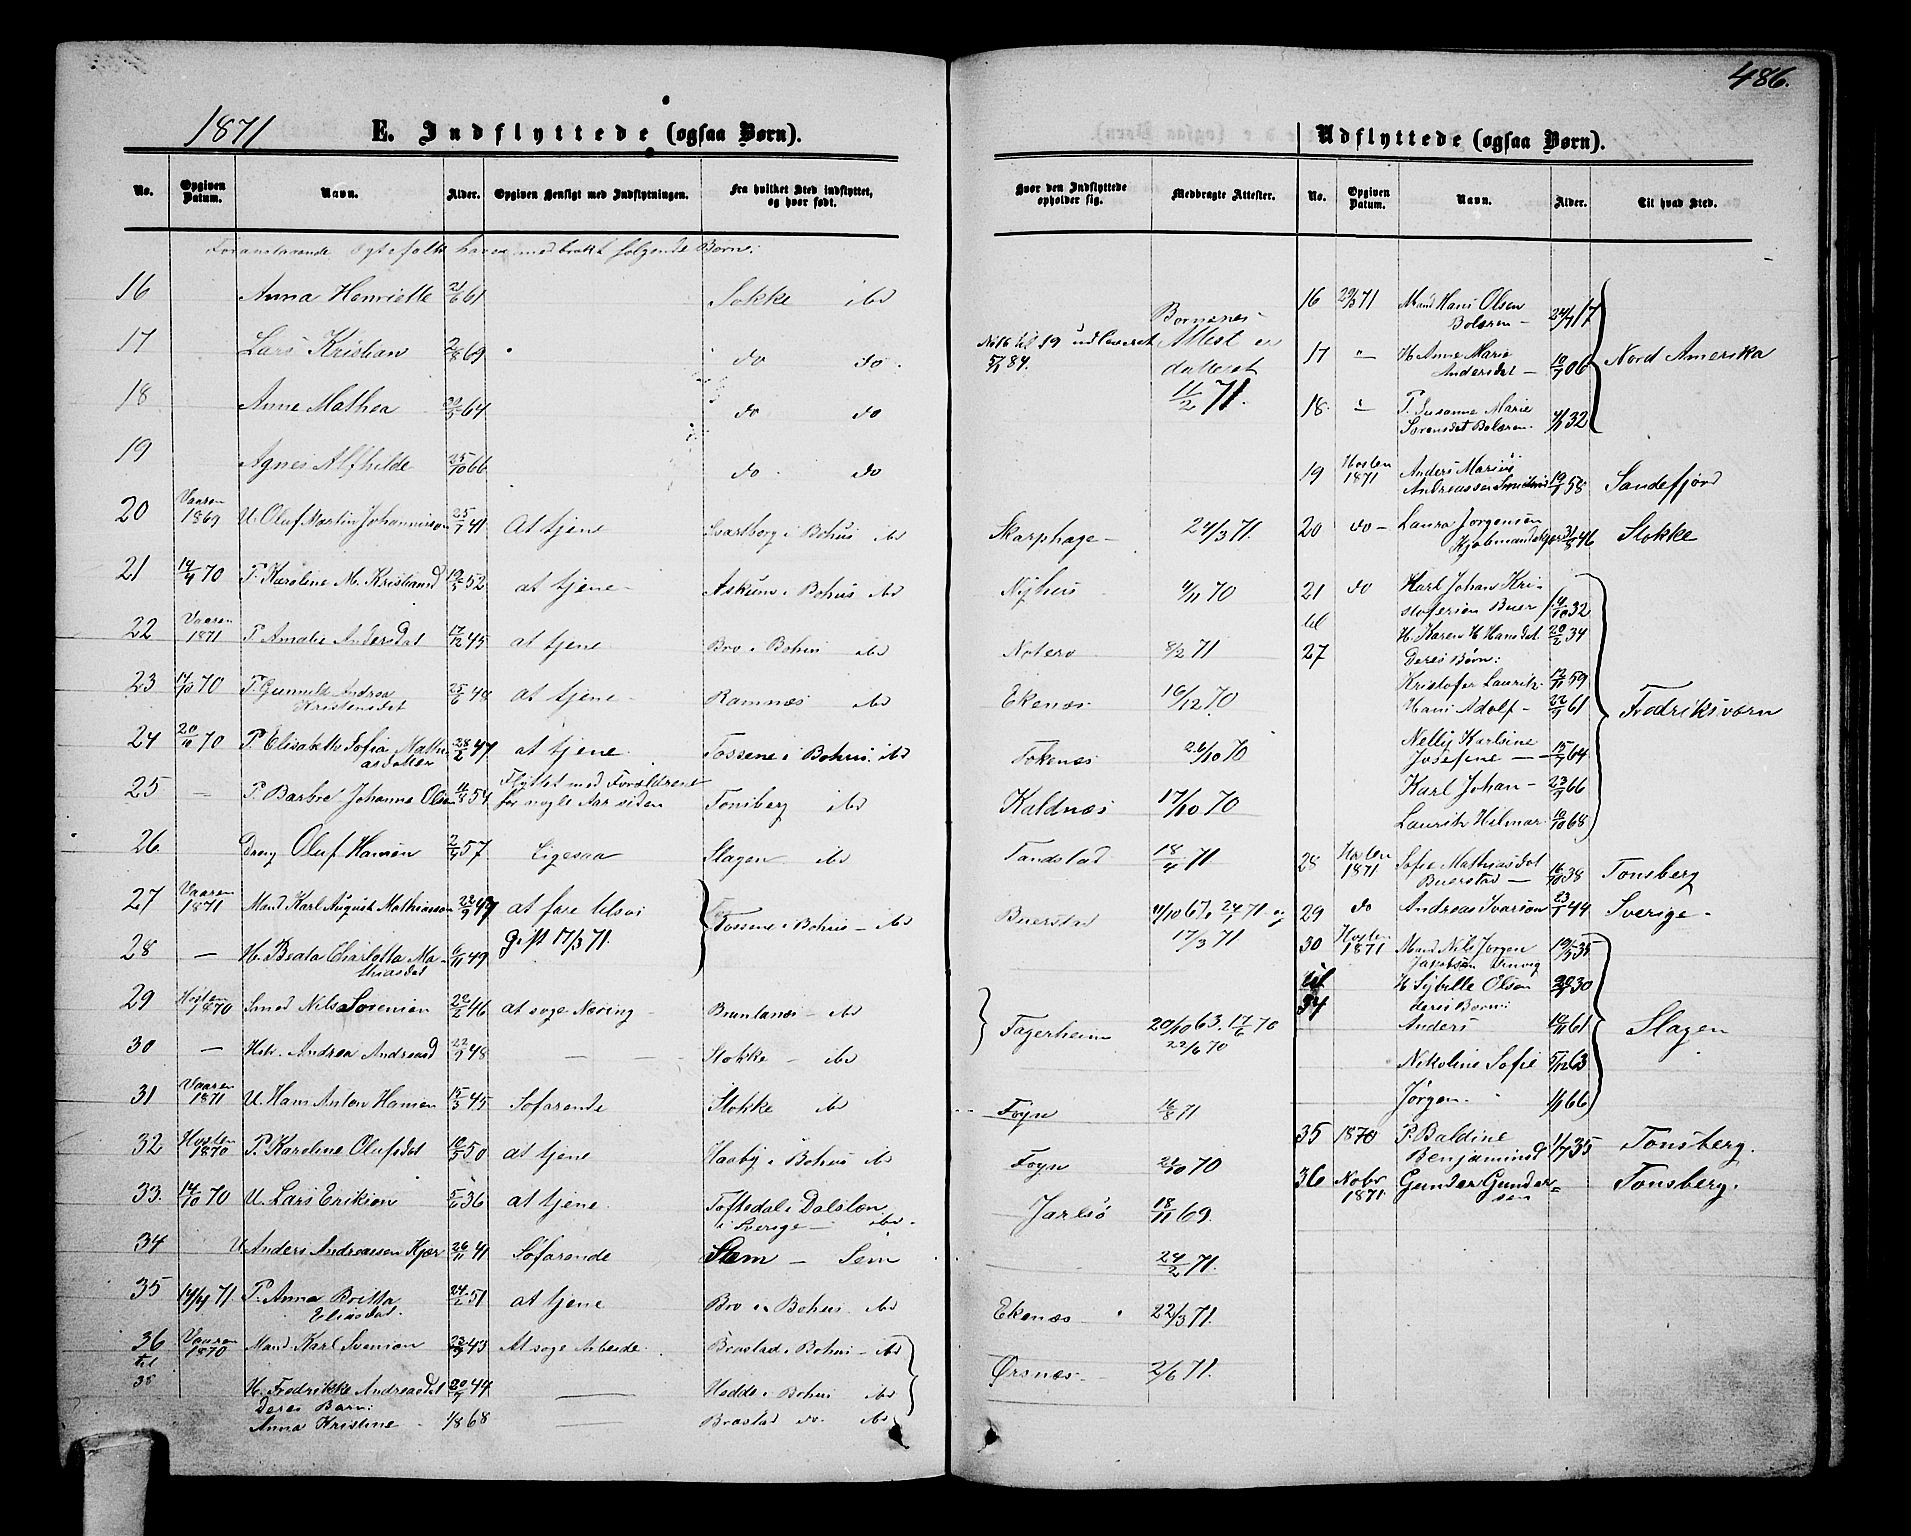 486.
1871
E. Indflyttede (ogsaa Børn).
No. Opgiven Datum. Navn. Alder. Opgiven Hensigt med Indflytningen. Fra hvilket Sted indflyttet, og hvor født.
Foranstaaende Egtefolk haver medbrakt følgende Børn:
16 Anna Henriette 21/6 61 Stokke ibd
17 Lars Kristian 2/8 69 do do
18 Anne Mathea 64 do do
19 Agnes Alfhilde 25/10 66 do do
20 Vaaren 1869 U. Oluf Martin Johannesson 25/7 41 At tjene Svarteborg i Bohus ibd
21 14/4 70 P. Karoline M. Kristiansd 52 at tjene Askum i Bohus ibd
22 Vaaren 1871 P. Amalie Andersdat 17/12 45 at tjene Bro i Bohus ibd
23 14/10 70 P. Gunnild Andrea Kristensdat 25/6 48 at tjene Ramnæs ibd
24 20/10 70 P. Elisabeth Sofia Mathiasdatter 28/2 47 at tjene Tossene i Bohus ibd
25 — P. Barbro Johanne Olsen 16/8 54 Flyttet med Forældrene for nogle Aar siden Tonsberg ibd
26 Dreng Oluf Hansen 2/9 57 Ligesaa Slagen ibd
27 Vaaren 1871 Mand Karl August Mathiasson 22/9 47 at fare tilsøs Gift 17/3 71. Tossene i Bohus — ibd
28 — H. Beata Charlotta Mathiasdat 6/11 49
29 Hosten 1870 Smed Nils Sorensen 22/2 46 at soge Næring Brunlanæs — ibd
30 — Hstr. Andrea Andreasd 22/9 48 — — Stokke — ibd
31 Vaaren 1871 U. Hans Anton Hansen 15/3 45 Sofarende Stokke ibd
32 Hosten 1870 P. Karoline Olufsdat 50 at tjene Haaby i Bohus ibd
33. 14/10 70 U. Lars Erikson 5/6 36 at tjene. Toftedal i Dalsland i Sverige — ibd.
34 U Anders Andreassen Kjær 26/11 41 Sofarende Slem — Sem
35 14/4 71. P. Anna Britta Eliasdat. 24/2 51 at tjene Bro i Bohus ibd
36 til 38 Vaaren 1870 Mand Karl Svenson 23/9 43 At soge Arbeide. Brastad i Bohus — ibd
H. Fredrikke Andreasdat 20/9 44 — Hedde i Bohus ibd
Deres Barn:
Anna Kristine 1/8 68 — Brastad do. ibd
Udflyttede (ogsaa Børn).
Hvor den Indflyttede opholder sig. Medbragte Attester. No. Opgiven Datum. Navn. Alder. Til hvad Sted.
No 16 til 19 udleveret 84. Bornenes Attest er dateret 11/2 71.
Skarphage — 24/3 71.
Nyhus 4/11 70
Notero 8/2 71
Ekenæs 16/12 70
Tokenæs 26/10 70
Kaldnæs 17/10 70
Tandstad 18/4 71
Buerstad 11/10 67, 24/1 71 og 17/3 71
Fagerheim 20/10 63. 17/6 70 22/6 70
Foyn 16/8 71
Foyn 21/10 70
Jarlsø 18/11 69.
24/2 71.
Ekenæs 22/3 71.
Ørsnæs 2/6 71.
16 29/3 71 Mand Hans Olsen Bolæren — 24/7 17 Nord Amerika
17 " H. Anne Marie Andersdat — 06
18 " P. Susanne Marie Sorensdat Bolæren 32
19 Hosten 1871 Anders Marius Andreassen 19/1 58 Sandefjord
20 do — Laura Jorgensen 31/8 46 Stokke
21 til 27 do Karl Johan Kristofersen Buer 14/10 32 Fredriksværn
H. Karen H. Hansdat 20/2 34
Deres Børn:
Kristofer Lauritz 59
Hans Adolf — 22/9 61
Nelly Karlsine Josefine — 15/7 64
Karl Johan — 23/9 66
Lauritz Hilmar 10/10 68
28 Hosten 1871 Sofie Mathiasdat Buerstad — 16/10 38 Tonsberg
29 do Andreas Ivarson 23/1 44 Sverige —
30 til 34 Hosten 1871 Mand Nils Jorgen Jakobsen 35 Slagen
H. Sybille Olsen 30
deres Børn:
Anders 61
Nikoline Sofie 5/12 63
Jørgen 66
35 1870 P. Baldine Benjaminsd 1/7 35 Tonsberg.
36 Nobr 1871 Gunder Gundersen Tonsberg.